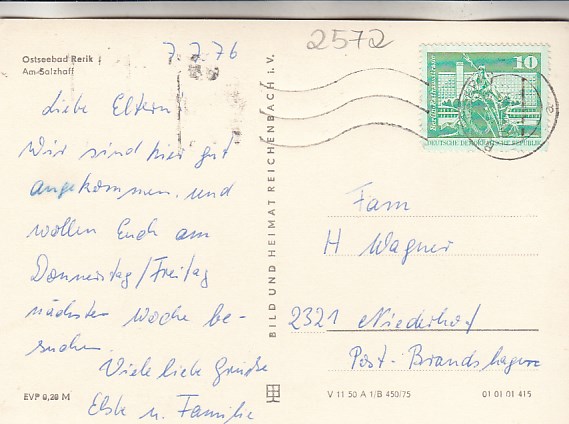 Ostseebad Rerik
Am Salzhaff
7.7.76
2572
Liebe Eltern
Wir sind hier gut
angekommen und
wollen Euch am
Donnerstag/Freitag
nächsten Woche be-
suchen.
Viele liebe Grüße
Elske u. Familie
EVP 0,20 M
BILD UND HEIMAT REICHENBACH i. V.
10
DEUTSCHE DEMOKRATISCHE REPUBLIK
Fam
H Wagner
2321 Niederhof
Post-Brandshagen
V 11 50 A 1/B 450/75
01 01 01 415